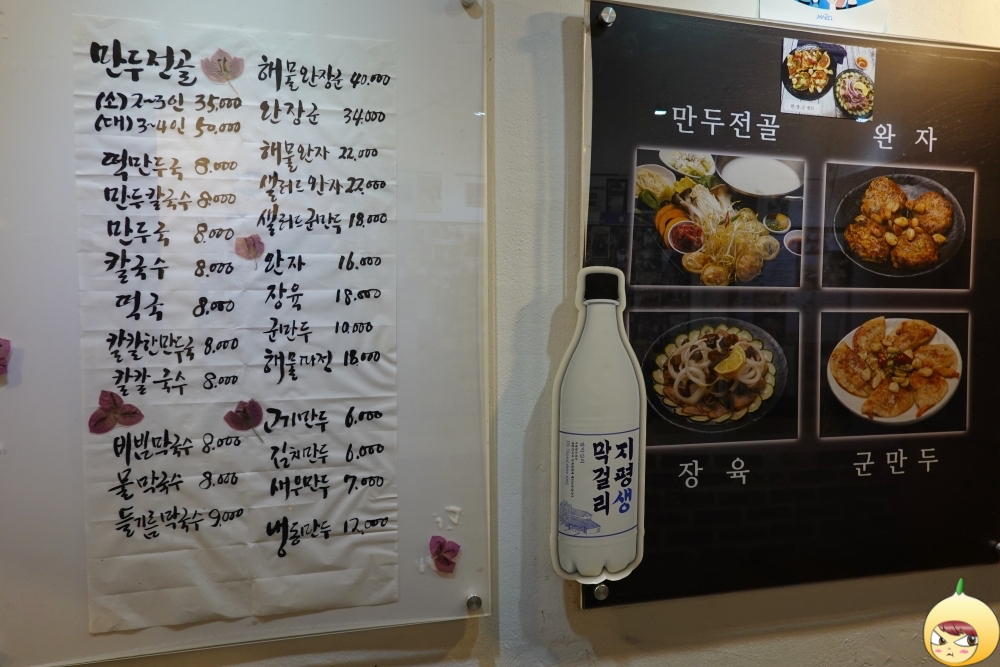 만두전골
(소) 2~3인 35,000
(대) 3~4인 50,000
떡만두국 8.000
만두칼국수 8.000
만두국 8.000
칼국수 8.000
떡국 8.000
칼칼한만두국 8.000
칼칼국수 8.000
비빔막국수 8.000
물막국수 8.000
들기름막국수 9.000
해물완장군 40.000
완장군 34.000
해물완자 22.000
샐러드완자 22.000
샐러드군만두 18.000
완자 16.000
장육 18.000
군만두 10.000
해물파전 18.000
고기만두 6.000
김치만두 6.000
새우만두 7.000
냉동만두 12,000
지평생
막걸리
만두전골
완자
장육
군만두